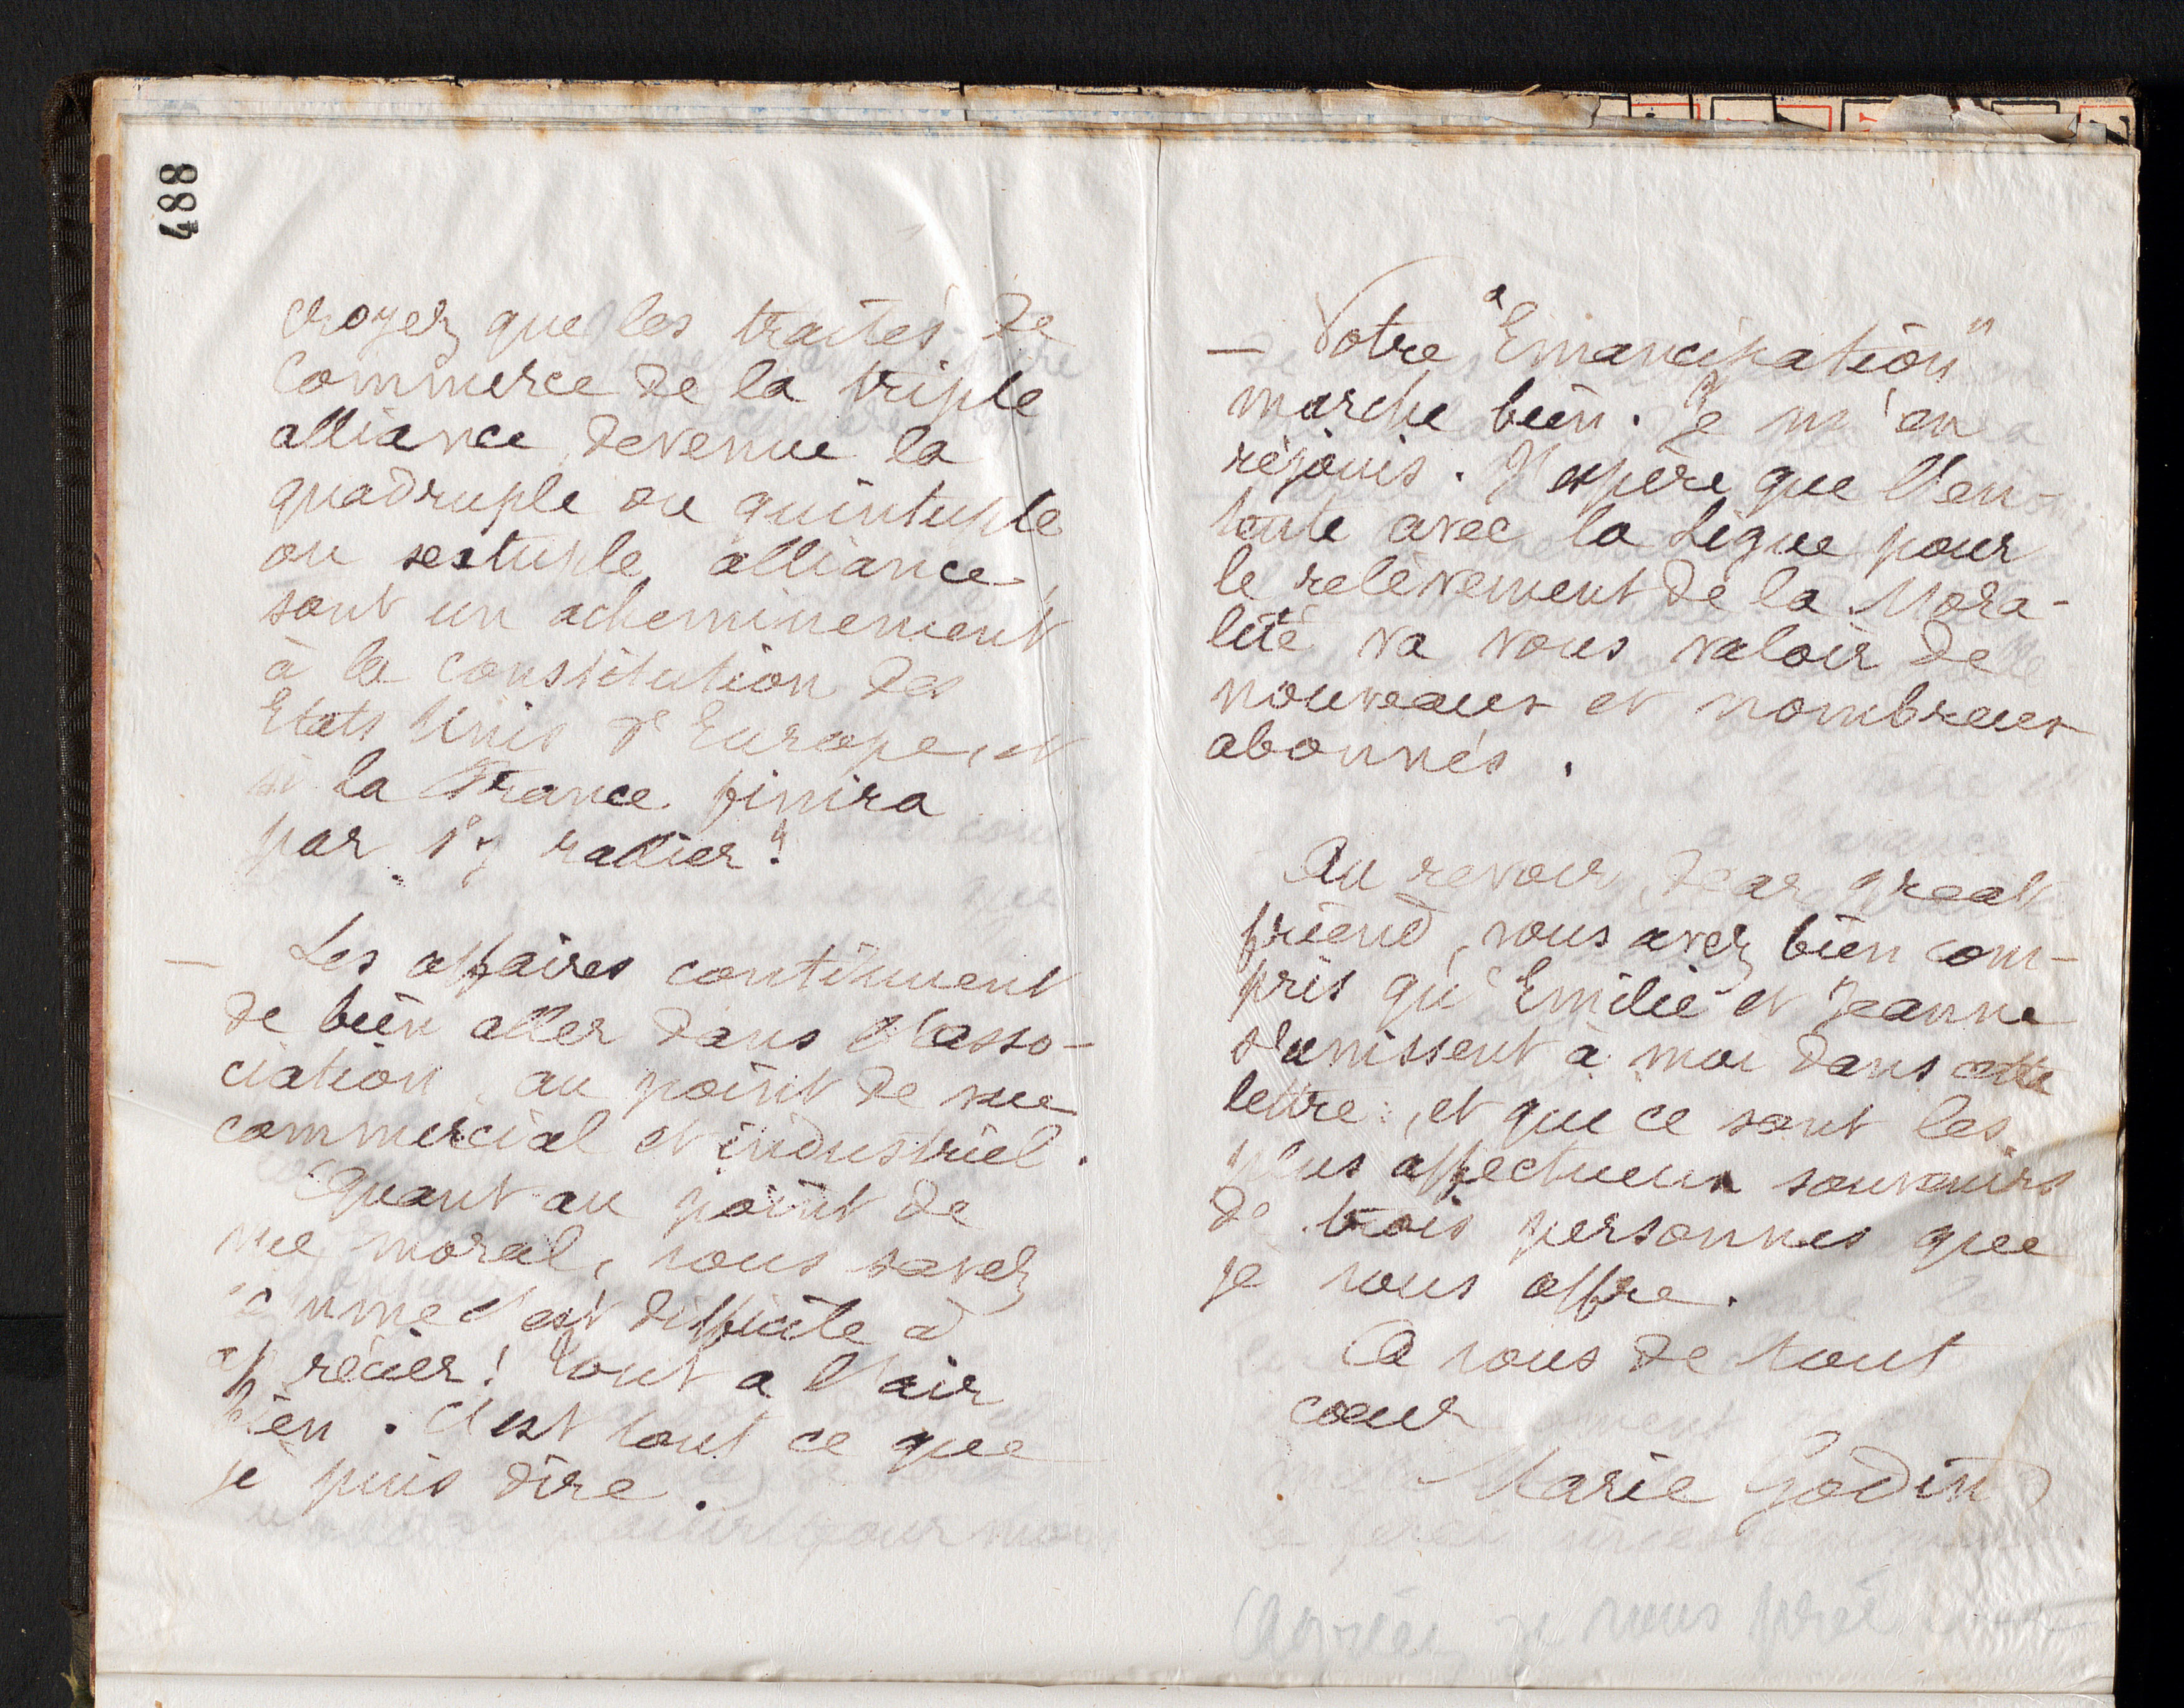 488
croyez que les traités de
Commerce de la triple
alliance, devenue la
quadruple ou quintuple
ou sextuple alliance,
sont un acheminement
à la constitution des
Etats Unis d'Europe, et
si la France finira
par s'y rallier!
— Les affaires continuent
de bien aller dans l'asso-
ciation, au point de vue
commercial et industriel.
Quant au point de
vue moral, vous savez
comme c'est difficile à
apprécier! Tout a l'air
bien. C'est tout ce que
je puis dire.
— Votre "Emancipation"
marche bien. Je m'en
réjouis. J'espère que l'en-
tente avec la Ligue pour
le relèvement de la Mora-
lité va vous valoir de
nouveaux et nombreux
abonnés.
Au revoir, dear great
friend, vous avez bien com-
pris qu'Emilie et Jeanne
s'unissent à moi dans cette
lettre, et que ce sont les
plus affectueux souvenirs
de trois personnes que
je vous offre.
A vous de tout
coeur
Marie Godin